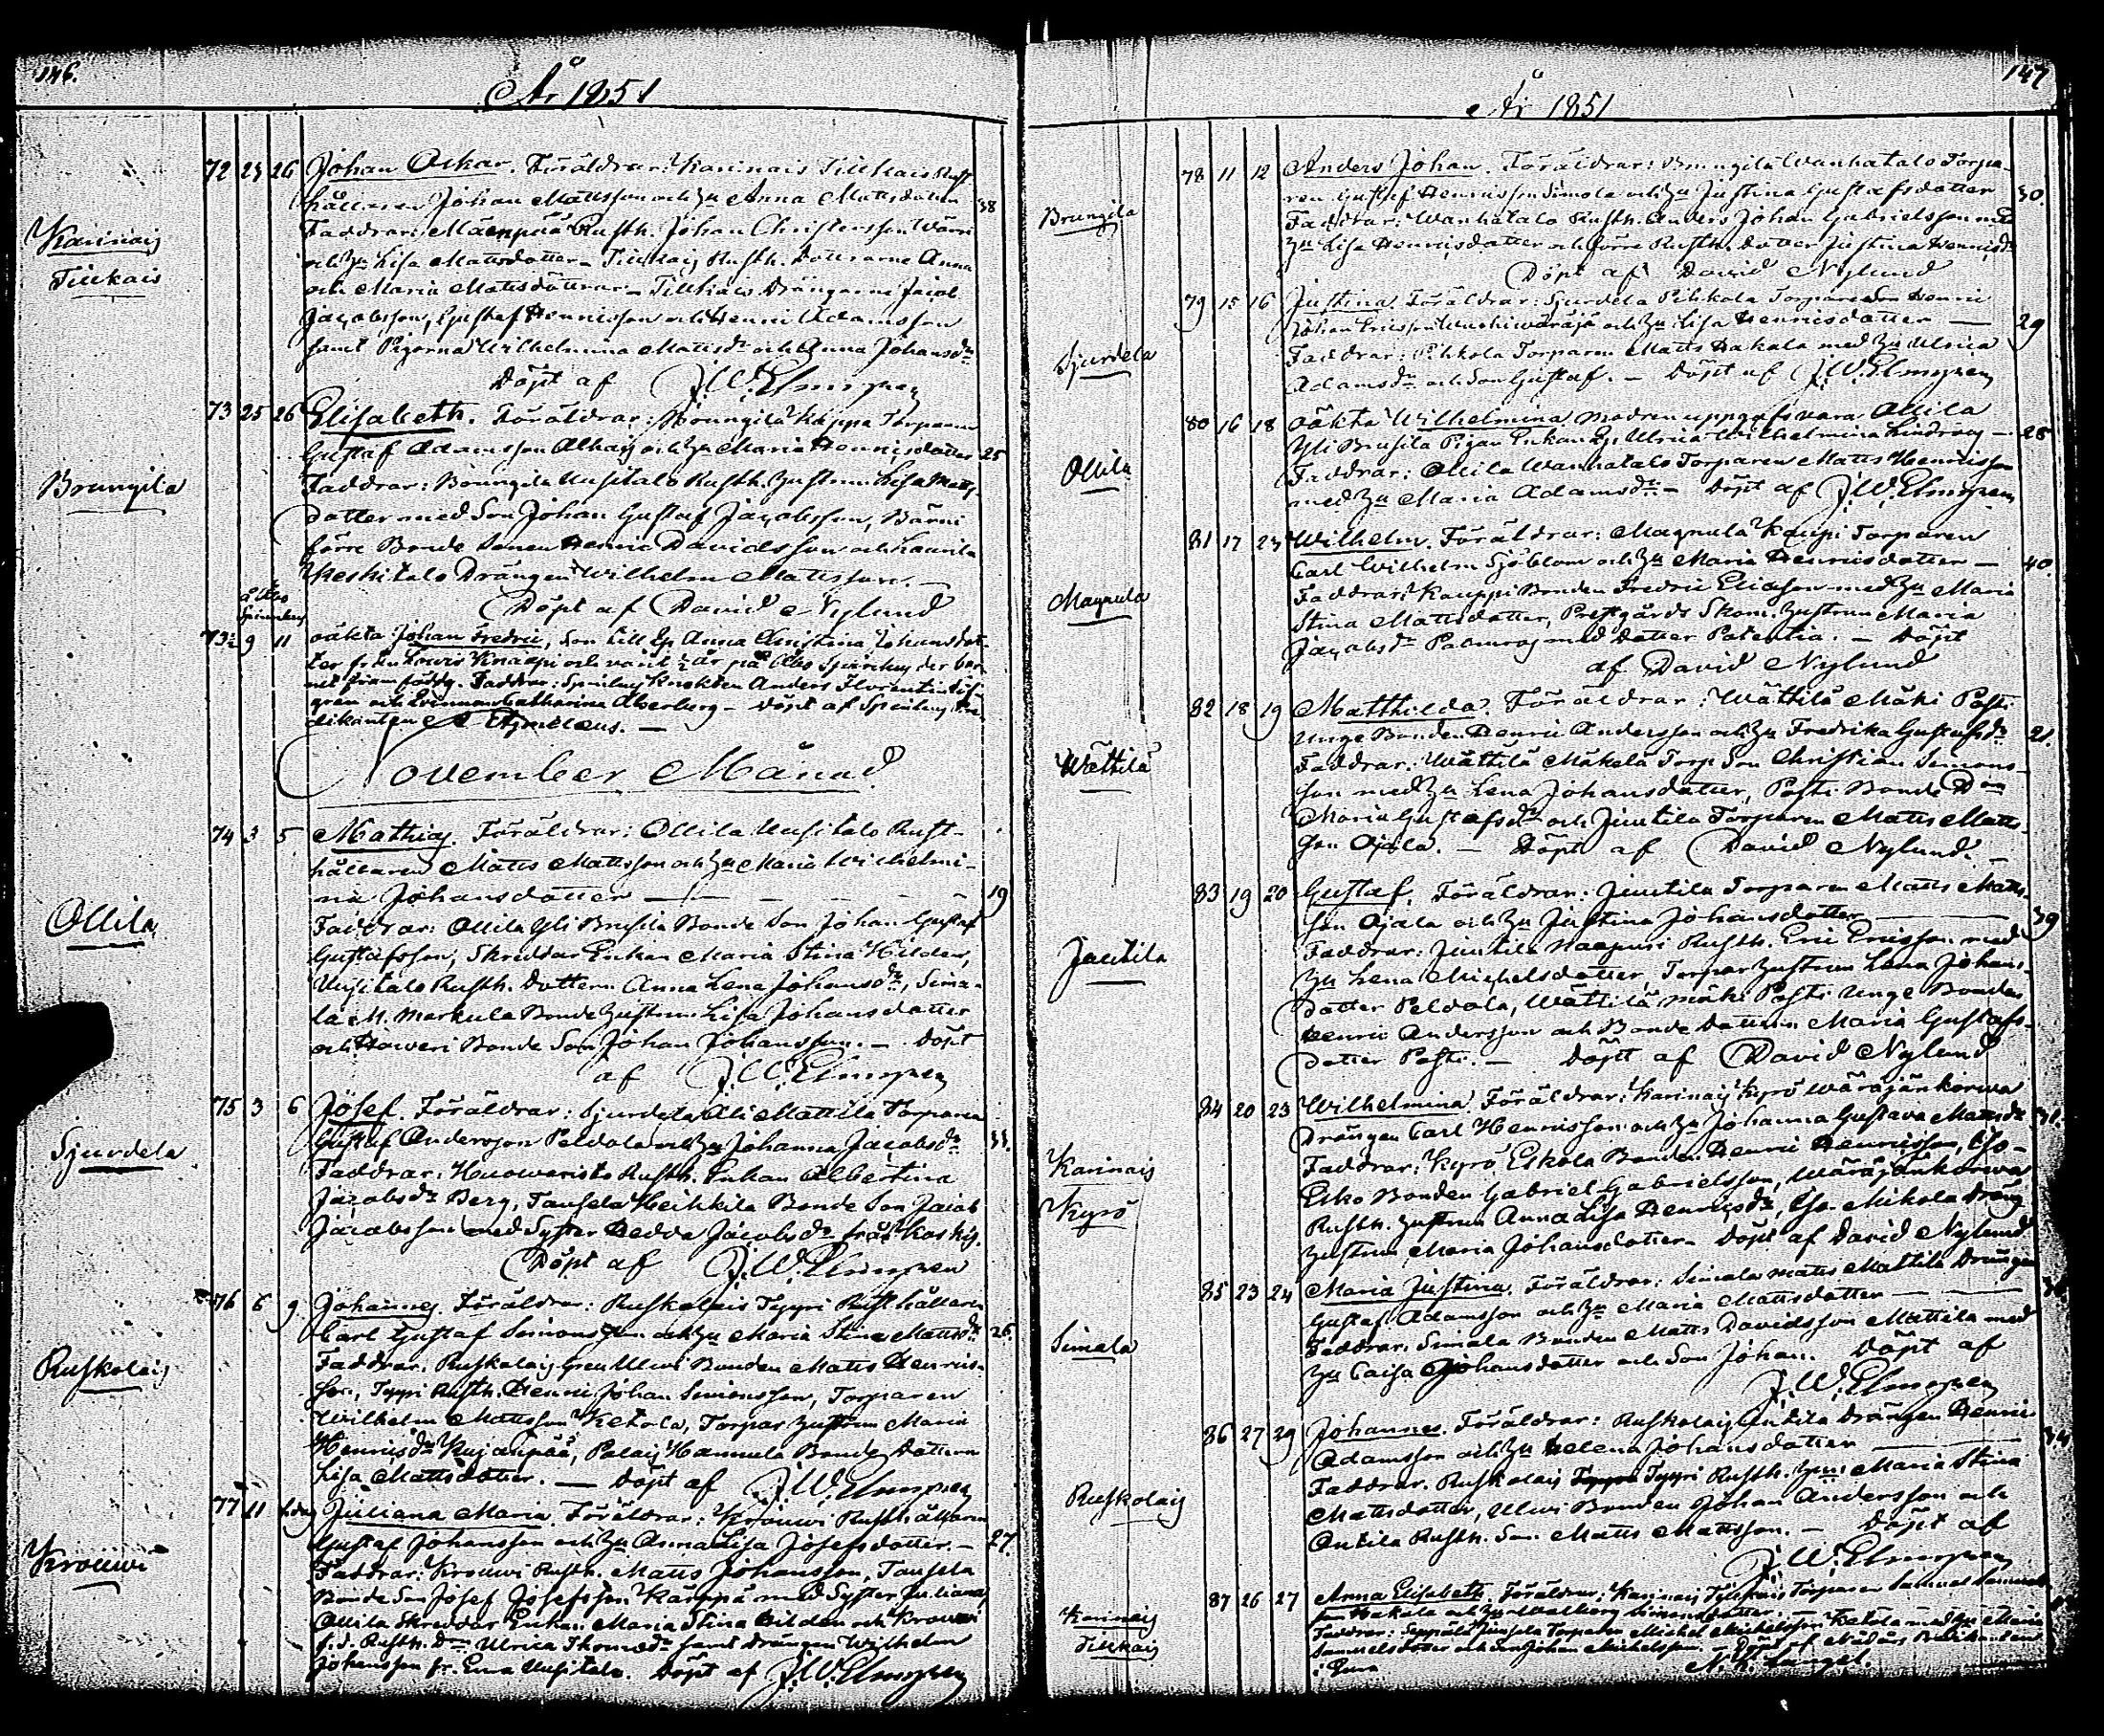 146.
År 1851
Karinais
Tiilikais
72 23 26 Johan Oskar. Föräldrar: Karinais Tiilikais Rust-
hållaren Johan Mattsson och Hu Anna Mattsdotter 38
Faddrar: Mäenpää Rusth. Johan Christersson
och Hu Lisa Mattsdotter – Tiilikais Rusth. Döttrarne Anna
och Maria Matts döttrar – Tiilikais Drängarne Jacob
Jacobsson, Gustaf Henricsson och Henric Adamsson
samt Pigorna Wilhelmina Mattsdr och Anna Johansdr
Döpt af J.W. Elmgren
Brungila
73 25 26 Elisabeth. Föräldrar: Brungila Kappa Torparen
Gustaf Adamsson Alhais och Hu Maria Henricsdotter 25
Faddrar: Brungila Uusitalo Rusth. Hustrun Lisa Matts-
dotter med Son Johan Gustaf Jacobsson,
förre Bonde Sonen Henric Davidsson och Laurila
Keskitalo Drängen Wilhelm Mattsson. –
Döpt af David Nylund
å Åbo
Spinnhus
73½ 9 11 oäkta Johan Fredric, Son till Anna Christina Johansdot-
ter från och varit ½ år på Åbo Spinnhus der bar-
net framföddes. Faddrar: Knekten Anders Florentin
gren och Qvinnan Catharina Åkerberg – Döpt af Spinhus Pre-
dikanten
November Månad
Ollila
74 3 5 Mathias. Föräldrar: Ollila Uusitalo Rust-
hållaren Matts Mattsson och Hu Maria Wilhelmi-
na Johansdotter – 19
Faddrar: Ollila Yli Brusila Bonde Son Johan Gustaf
Gustafsson, Skreddar Enkan Maria Stina Hilden,
Uusitalo Rusth. Dottern Anna Lena Johansdr, Sima-
la M. Markula Bonde Hustrun Lisa Johansdotter
och Haweri Bonde Son Johan Johansson. – Döpt
af J.W. Elmgren
Sjurdela
75 3 6 Josef. Föräldrar: Sjurdela Ali Mattila Torparen
Gustaf Andersson Peldola och Hu Johanna Jacobsdr 33.
Faddrar: Huoweristo Rusth. Enkan Albertina
Jacobsdr Berg, Tausela Heikkila Bonde Son Jacob
Jacobsson med Syster Hedda Jacobsdr från Koskis.
Döpt af J.W. Elmgren
Ruskolais
76 6 9 Johannes. Föräldrar: Ruskolais Typpi Rusthållaren
Carl Gustaf Simonsson och Hu Maria Stina Mattsdr 26.
Faddrar. Ruskolais Ulwi Bonden Matts Henrics-
son, Typpi Rusth. Henric Johan Simonsson, Torparen
Wilhelm Mattsson Ketola, Torpar Hustrun Maria
Henricsdr Kujanpää, Palais Hannula Bonde Dottern
Lisa Mattsdotter. – Döpt af J.W. Elmgren
Krouwi
77 11 s. dag Juliana Maria. Föräldrar: Krouwi Rusthållaren
Gustaf Johansson och Hu Anna Lisa Josefsdotter. – 27.
Faddrar: Krouwi Rusth. Matts Johansson, Tausela
Bonde Son Josef Josefsson Kärppä med Syster Juliana,
Ollila Skreddar Enkan Maria Stina Hilden och Krouwi
f.d. Rusth. Dr Ulrica Thomasdr samt Drängen Wilhelm
Johansson fr. Eura Uusitalo. Döpt af J.W. Elmgren
147
År 1851
Brungila
78 11 12 Anders Johan. Föräldrar: Brungila Wanhatalo Torpa-
ren Gustaf Henricsson Simola och Hu Justina Gustafsdotter 30.
Faddrar: Wanhatalo Rusth. Anders Johan Gabrielsson med
Hu Lisa Henricsdotter och förre Rusth. dotter Justina Henricsdr
Döpt af David Nylund
Sjurdela
79 15 16 Justina. Föräldrar: Sjurdela Pihkola Torpare Son Henric
Johan Ericsson och Hu Lisa Henricsdotter – 29
Faddrar: Pihkola Torparen Matts Hakala med Hu Ulrica
Adamsdr och Son Gustaf. – Döpt af J.W. Elmgren
Ollila
80 16 18 oäkta Wilhelmina modren uppgafs vara Ollila
Yli Brusila Pigan Enkan Ulrica Wilhelmina Lindroos – 28
Faddrar: Ollila Wanhatalo Torparen Matts Henricsson
med Hu Maria Adamsdr – Döpt af J.W. Elmgren
Magnula
81 17 23 Wilhelm. Föräldrar: Magnula Kaupi Torparen
Carl Wilhelm Sjöblom och Hu Maria Henricsdotter – 40.
Faddrar: Kauppi Bonden Fredric Eliasson med Hu Maria
Stina Mattsdotter, Prestgårds Skom. Hustrun Maria
Jacobsdr Palmroos med Dotter Patentia. – Döpt
af David Nylund
Wättilä
82 18 19 Matthilda. Föräldrar: Wättilä Mäki Posti
Unge Bonden Henric Andersson och Hu Fredrika Gustafsdr 21.
Faddrar: Wättilä Mäkelä Torp. Son Christian Simons-
son med Hu Lena Johansdotter, Posti Bonde Don
Maria Gustafsdr och Juutila Torparen Matts Matts-
son Ojala. – Döpt af David Nylund. –
Juutila
83 19 20 Gustaf. Föräldrar: Juutila Torparen Matts Matts-
son Ojala och Hu Justina Johansdotter – 39
Faddrar: Juutila Naapuri Rusth. Eric Ericsson med
Hu Lena Michelsdotter, Torpar Hustrun Lena Johans-
dotter Peldola, Wättilä Mäki Posti Unge Bonden
Henric Andersson och Bonde Dottern Maria Gustafs-
dotter Posti. – Döpt af David Nylund
Karinais
Kyrö
84 20 23 Wilhelmina. Föräldrar: Karinais Kyrö Wäräjänkorwa
Drängen Carl Henricsson och Hu Johanna Gustava Mattsdr 31.
Faddrar: Kyrö Eskola Bonden Henric Henricsson, Iso-
Esko Bonden Gabriel Gabrielsson, Wäräjänkorwa
Rusth. Hustrun Anna Lisa Henricsdr, Iso-Mikola Dräng
Hustrun Maria Johansdotter – Döpt af David Nylund
Simala
85 23 24 Maria Justina. Föräldrar: Simala Matts Mattila Drängen
Gustaf Adamsson och Hu Maria Mattsdotter –
Faddrar. Simala Bonden Matts Davidsson Mattila med
Hu Caisa Johansdotter och Son Johan. Döpt af
J.W. Elmgren
Ruskolais
86 27 29 Johannes. Föräldrar: Ruskolais Antila Drängen Henric
Adamsson och Hu Helena Johansdotter – 34
Faddrar. Ruskolais Typpi Rusth. Hun Maria Stina
Mattsdotter, Ulwi Bonden Johan Andersson och
Antila Rusth. Son Matts Mattsson. – Döpt af
J.W. Elmgren
Karinais
Tiilikais
87 26 27 Anna Elisabeth. Föräldrar: Karinais Tiilikais Torparen Samuel Samuels-
son Hakala och Hu Walborg Simonsdotter. –
Faddrar: Seppälä Juusela Torparen Michel Michelsson Ketola med Hu Maria
Samuelsdotter och Son Johan Michelsson. – Döpt af
i Eura